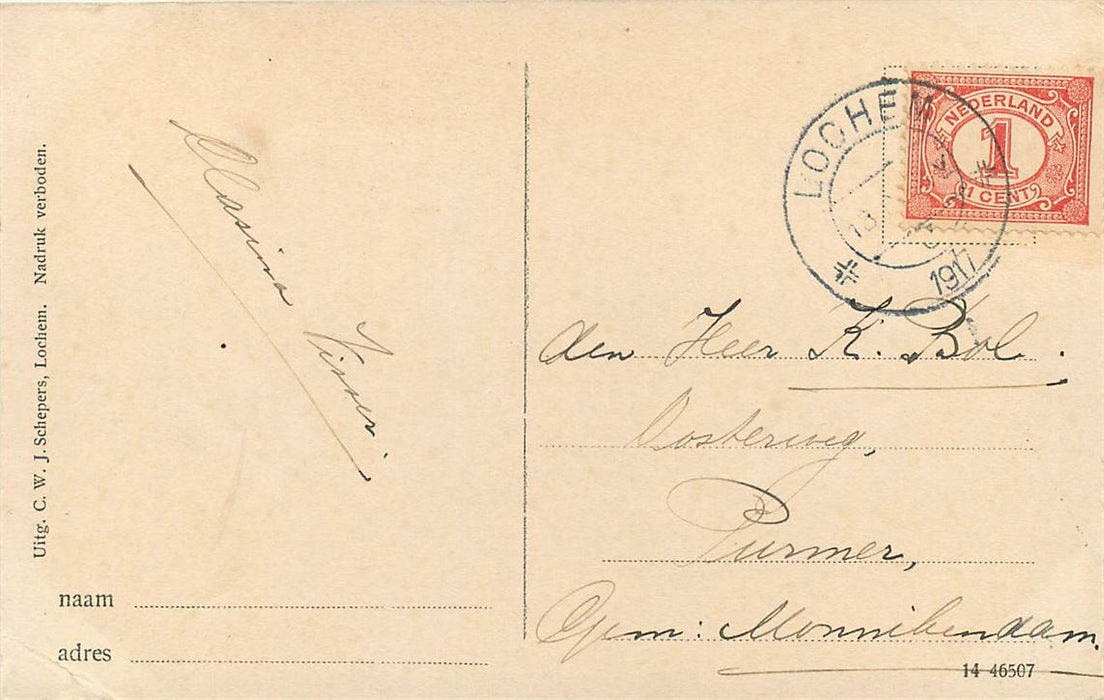 Uitg. C. W. J. Schepers, Lochem. Nadruk verboden.
Visser
naam
adres
NEDERLAND
1
1 CENT
LOCHEM
1917
den Heer K. Bol.
Oosterweg,
Purmer,
Gem: Monnikendam.
14 46507